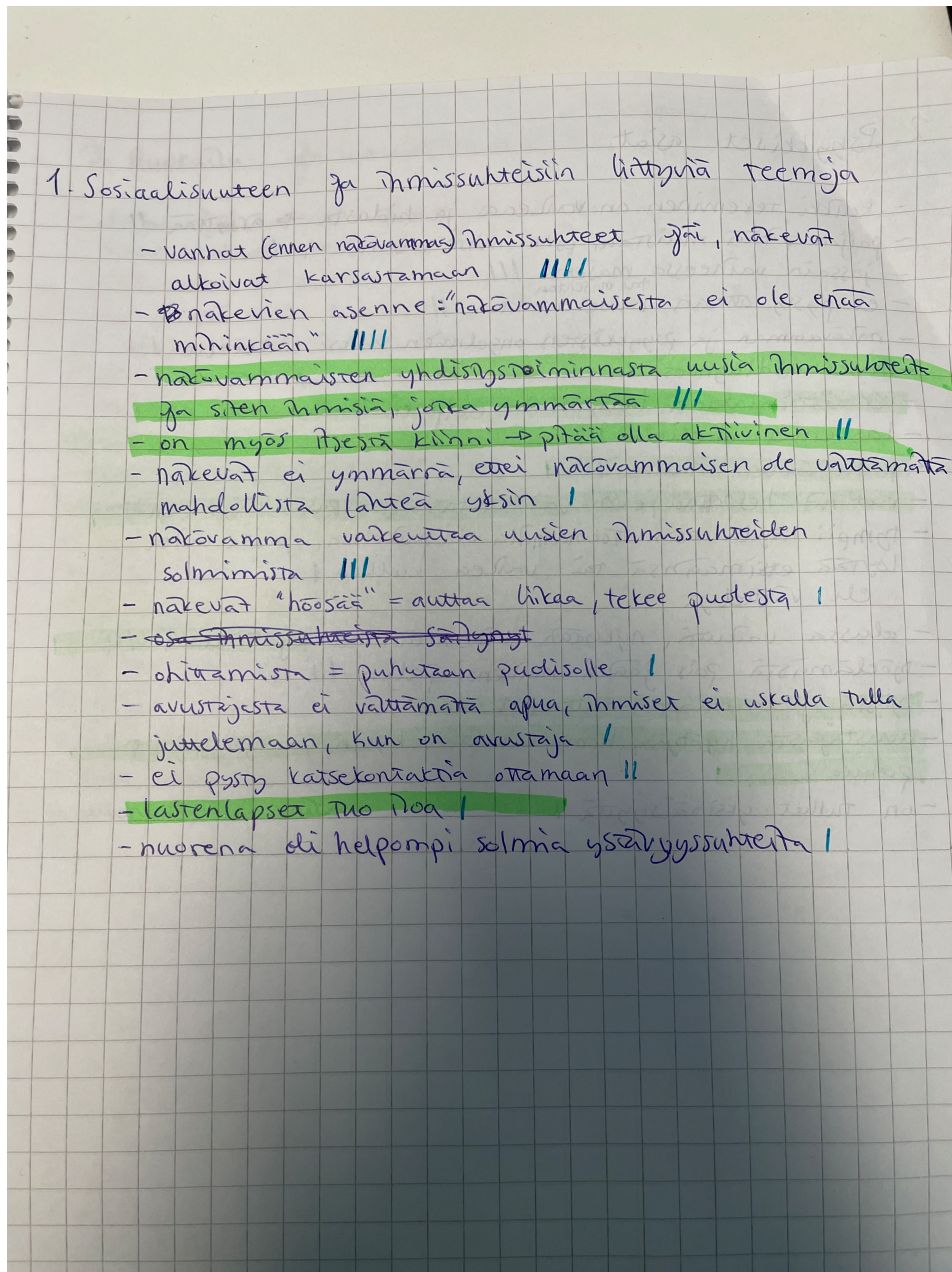 1. Sosiaalisuuteen ja ihmissuhteisiin liittyviä teemoja
- vanhat (ennen näkövammaa) ihmissuhteet jäi, näkevät
alkoivat karsastamaan ||||
- näkevien asenne: "näkövammaisesta ei ole enää
mihinkään" ||||
- näkövammaisten yhdistystoiminnasta uusia ihmissuhteita
ja siten ihmisiä, jotka ymmärtää |||
- on myös itsestä kiinni → pitää olla aktiivinen ||
- näkevät ei ymmärrä, ettei näkövammaisen ole välttämättä
mahdollista lähteä yksin |
- näkövamma vaikeuttaa uusien ihmissuhteiden
solmimista |||
- näkevät "höösää" = auttaa liikaa, tekee puolesta |
- osa ihmissuhteista säilynyt
- ohittamista = puhutaan puolisolle |
- avustajasta ei välttämättä apua, ihmiset ei uskalla tulla
juttelemaan, kun on avustaja |
- ei pysty katsekontaktia ottamaan ||
- lastenlapset tuo iloa |
- nuorena oli helpompi solmia ystävyyssuhteita |